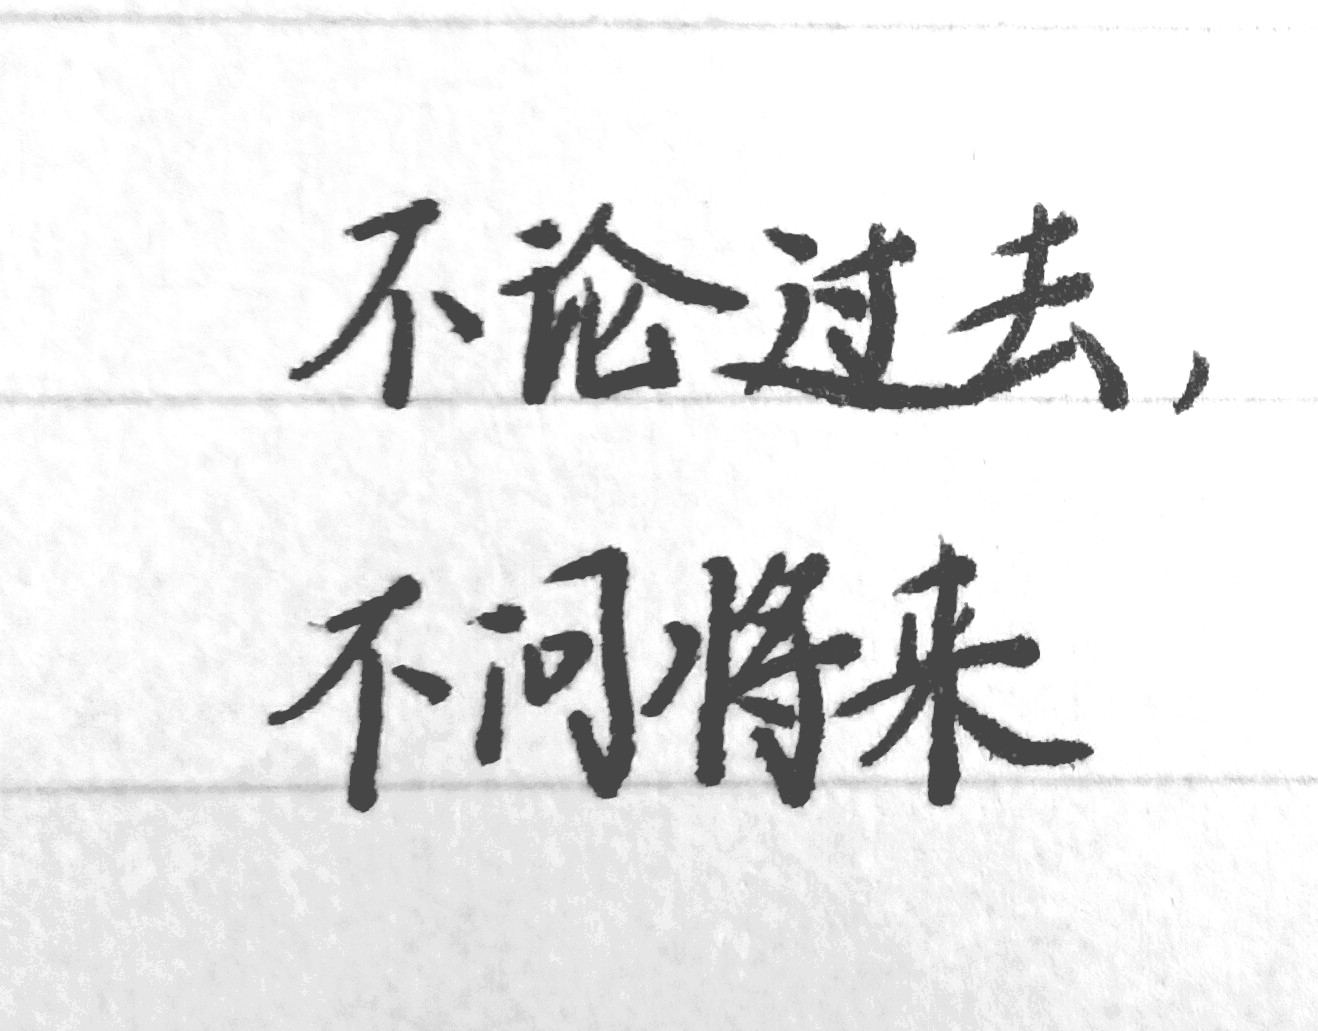 不论过去，
不问将来